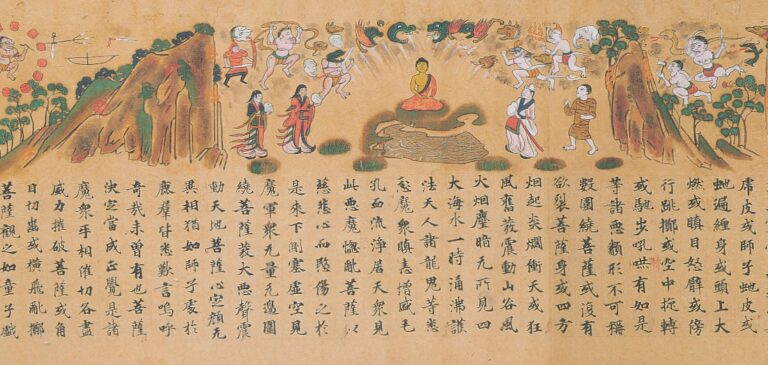 虎皮或師子虵皮或
虵遍纏身或頭上火
燃或瞋目怒臂或傍
行跳擲或空中旋轉
或馳步吼嚇有如是
等諸惡類形不可稱
數圍繞菩薩或復有
欲裂菩薩身或四方
烟起炎爛衝天或狂
風奮發震動山谷風
火烟塵暗无所見四
大海水一時涌沸護
法天人諸龍鬼等悉
忿魔衆瞋恚增盛毛
孔血流淨居天衆見
此惡魔惱亂菩薩以
慈悲心而愍傷之於
是來下側塞虛空見
魔軍衆无量无邊圍
繞菩薩發大惡聲震
動天地菩薩心定顏无
異相猶如師子處於
鹿群皆悉歎言嗚呼
奇哉未曾有也菩薩
決定當成正覺是諸
魔衆互相催切各盡
威力摧破菩薩或角
目切齒或橫飛亂擲
菩薩觀之如童子戲